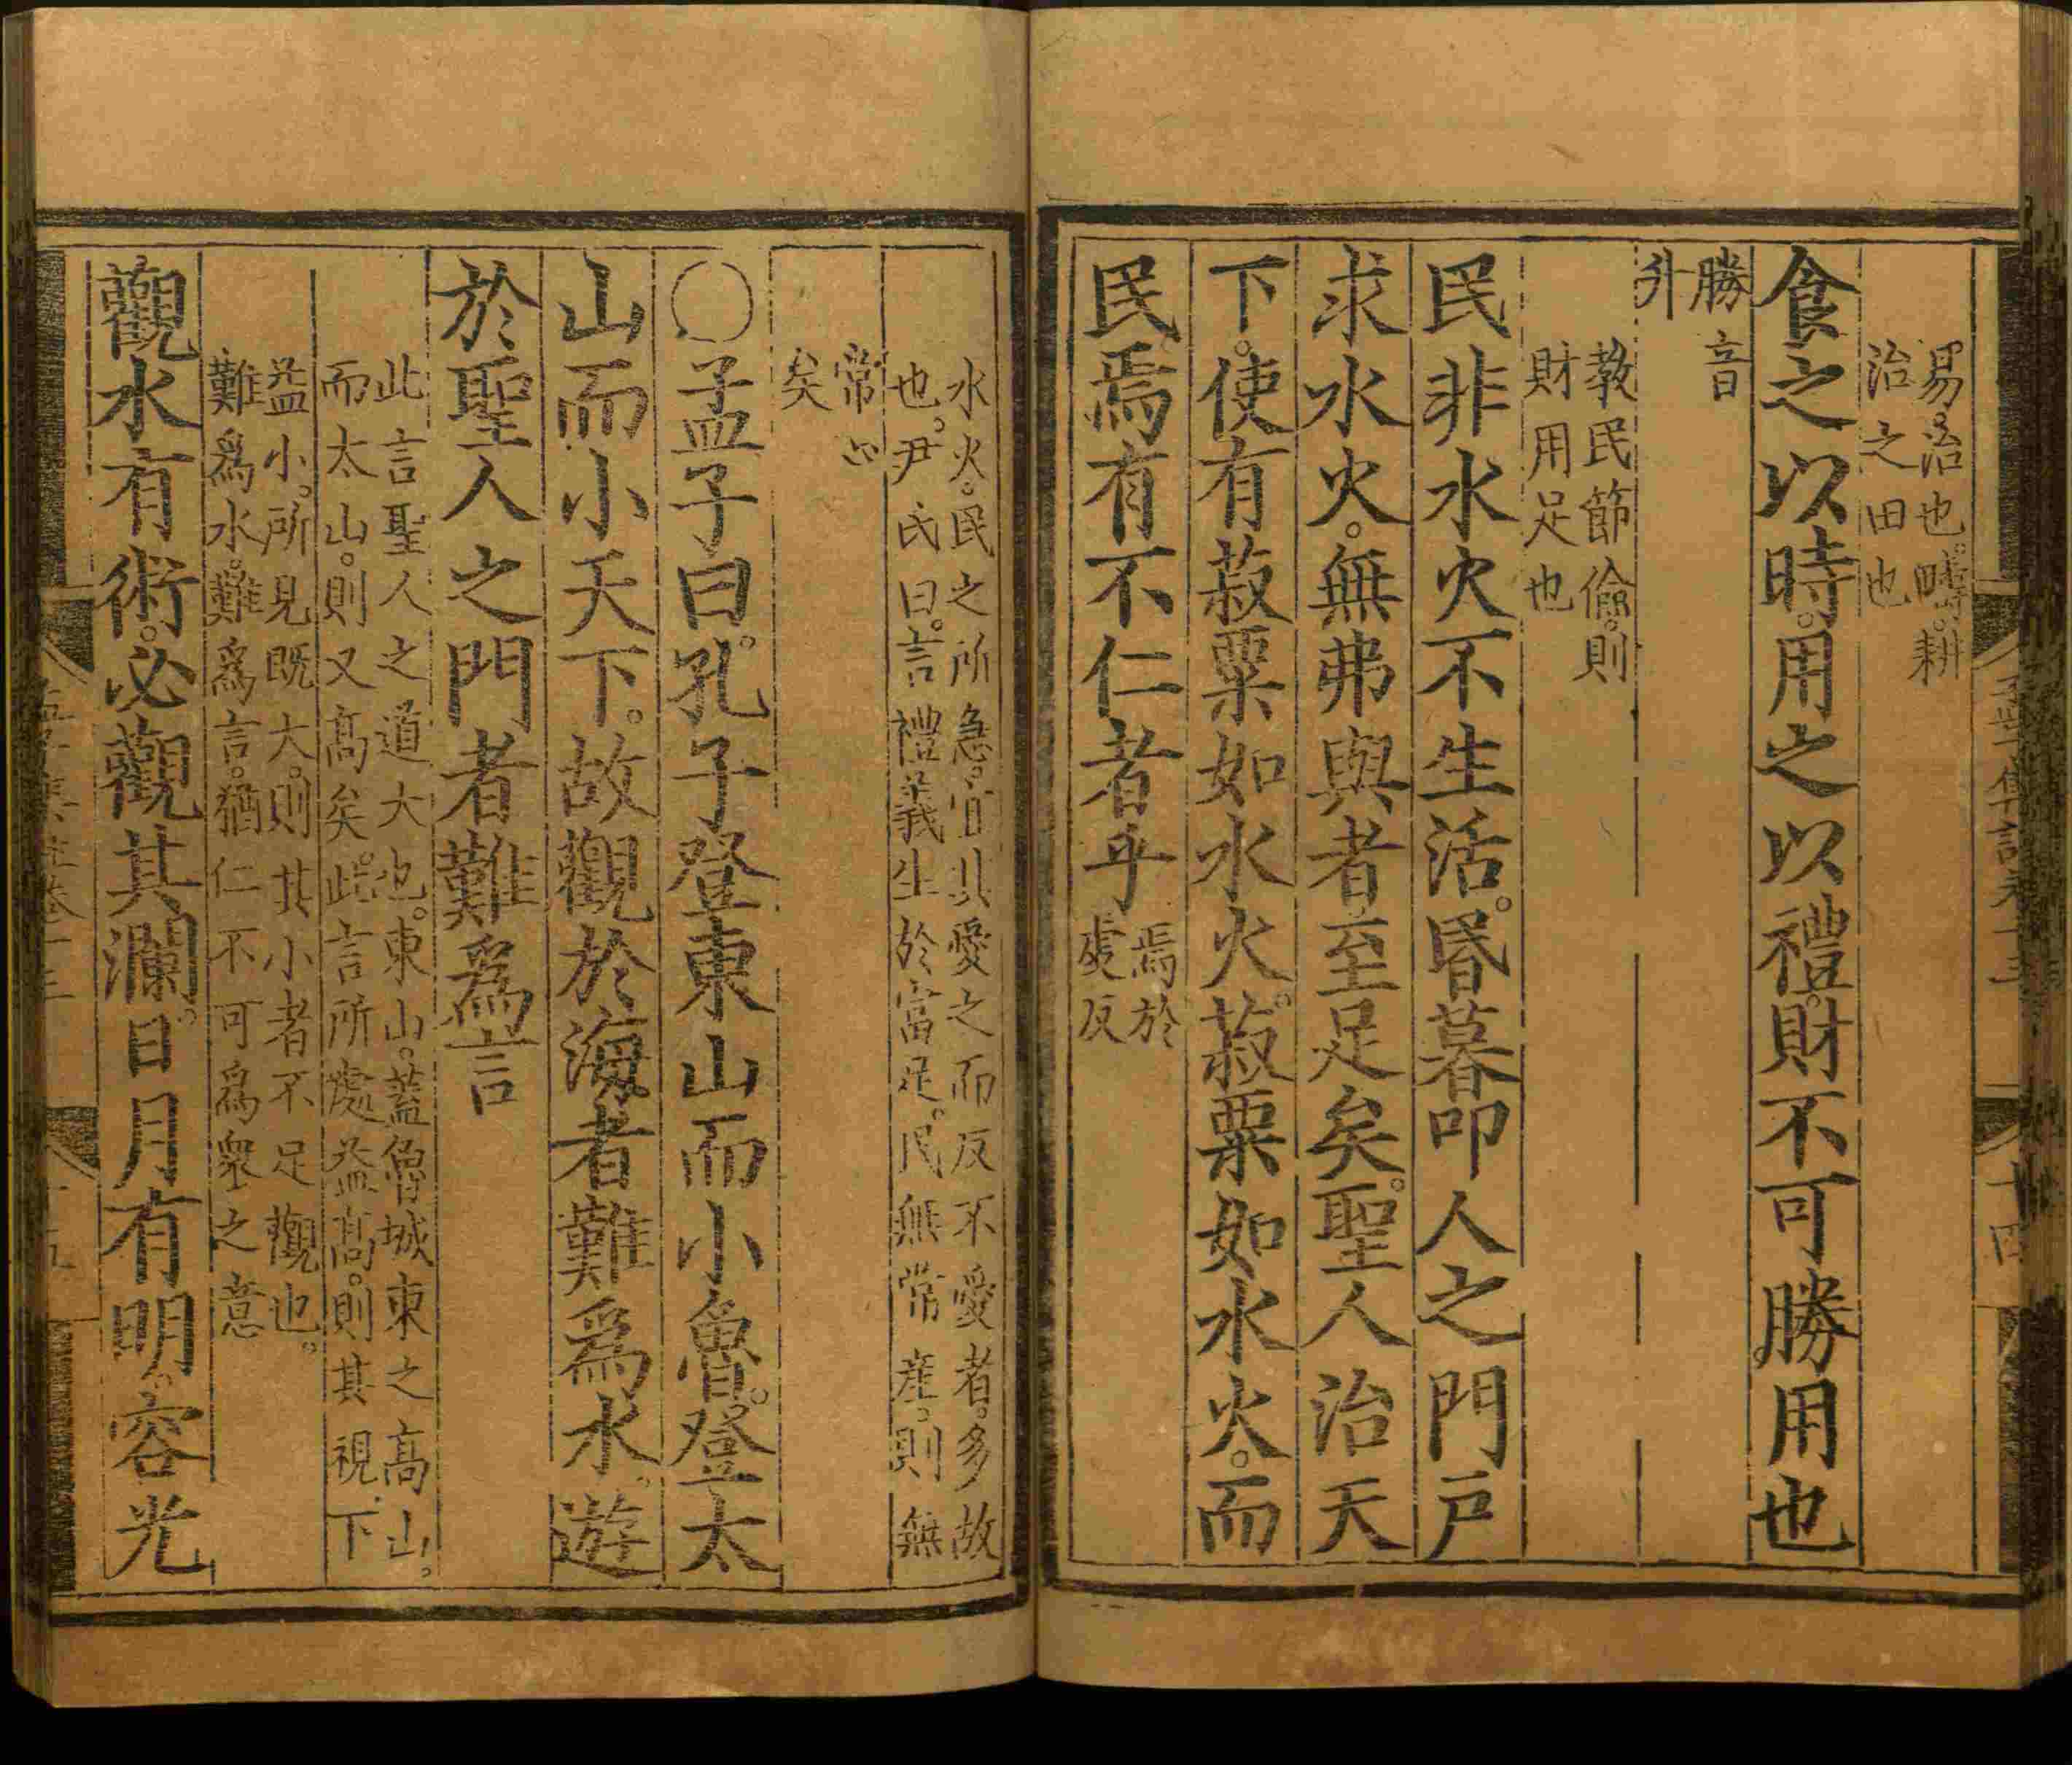 易。治也。疇。耕
治之田也
食之以時。用之以禮。財不可勝用也
勝音
升
教民節儉。則
財用足也
民非水火不生活。昬暮叩人之門戸
求水火。無弗與者至足矣。聖人治天
下。使有菽粟如水火。菽粟如水火。而
民焉有不仁者乎
焉於
虔反
水火。民之所急。宜其愛之而反不愛者。多故
也。尹氏曰。言禮義生於富足。民無常產。則無
常心
矣
○孟子曰。孔子登東山而小魯。登太
山而小天下。故觀於海。者難爲水。遊
於聖人之門者難爲言
此言聖人之道大也。東山。蓋魯城東之高山。
而太山。則又高矣。此言所處益高。則其視下
益小。所見既大。則其小者不足觀也。
難爲水。難爲言。猶仁不可爲衆之意
觀水有術。必觀其瀾。日月有明。容光